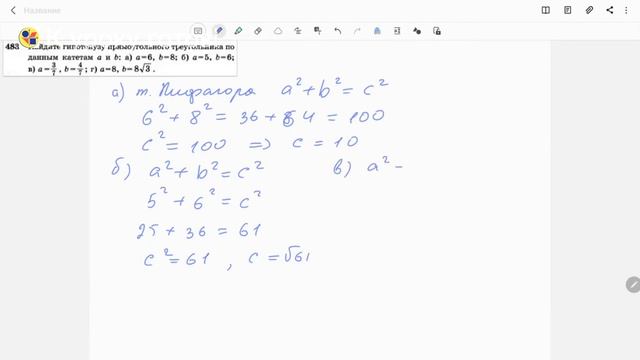 Название
483 Найдите гипотенузу прямоугольного треугольника по
данным катетам a и b: а) a=6, b=8; б) a=5, b=6;
в) a=3/7, b=4/7; г) a=8, b=8√3.
а) т. Пифагора a²+b²=c²
6²+8²=36+64=100
c²=100 => c=10
б) a²+b²=c²
5²+6²=c²
25+36=61
c²=61, c=√61
в) a²-